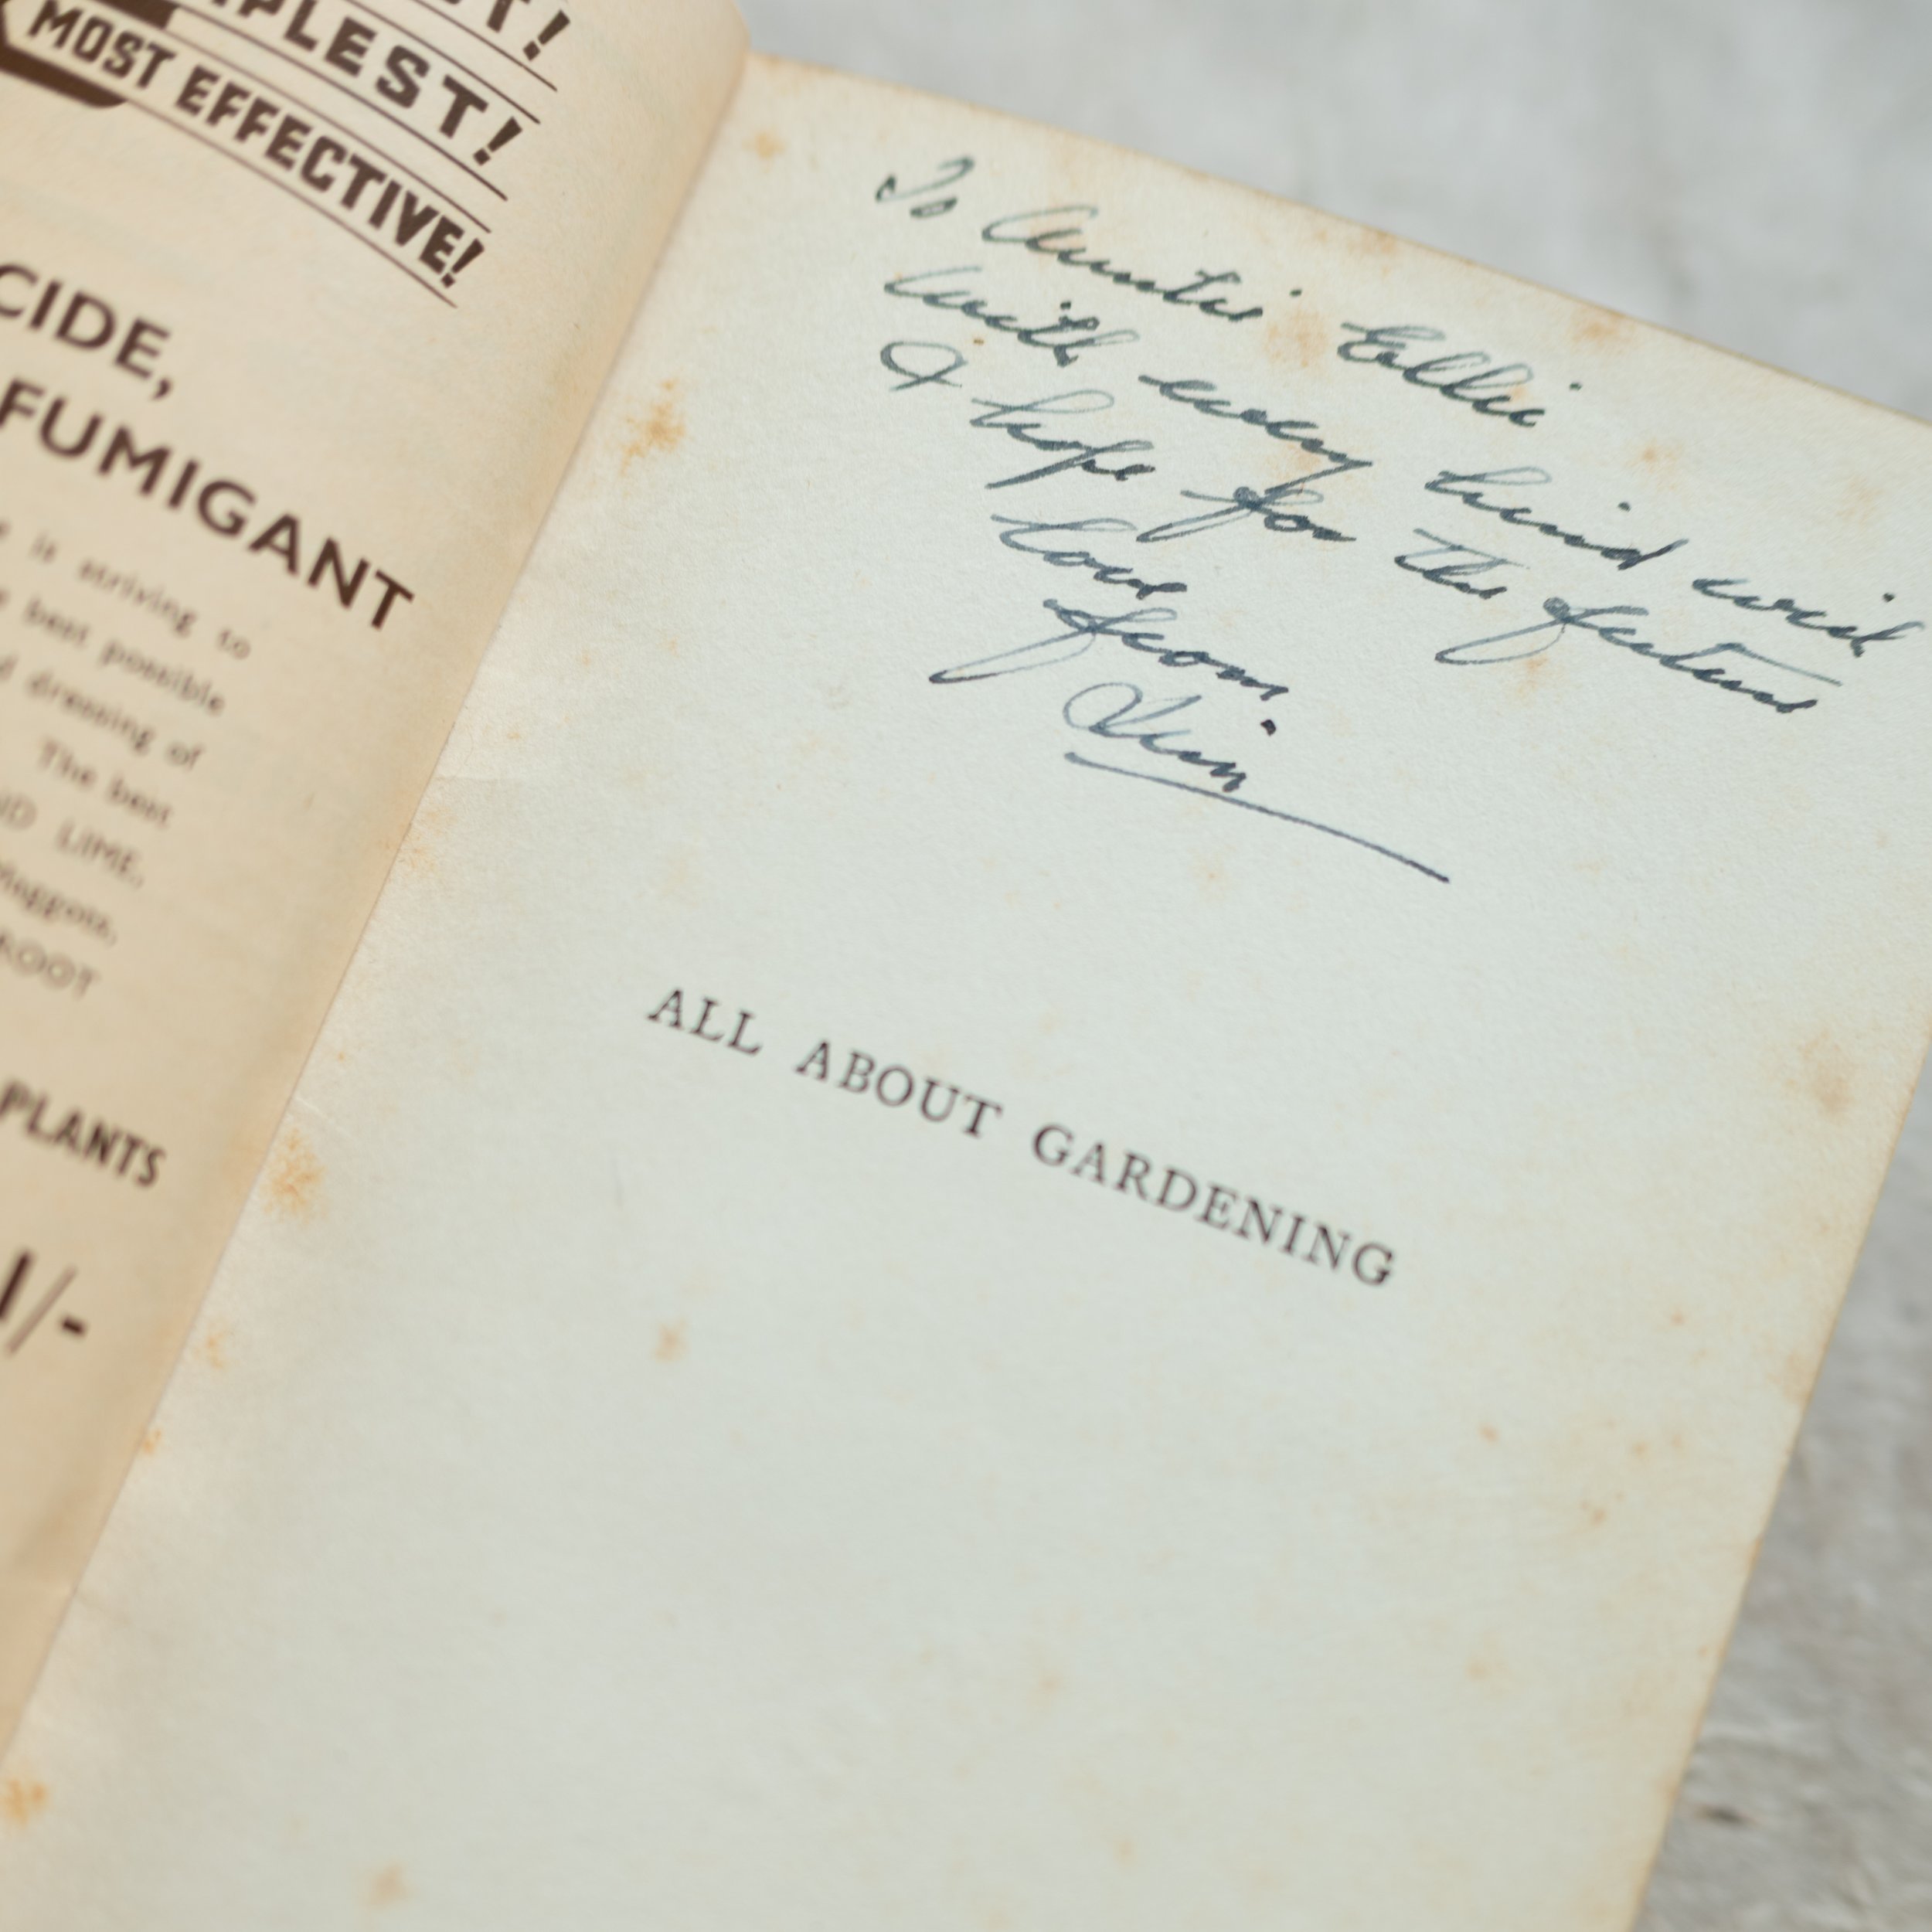 ST!
PLEST!
MOST EFFECTIVE!
CIDE,
FUMIGANT
is striving to
best possible
d dressing of
The best
ND LIME,
Maggots,
ROOT
PLANTS
1/-
To Auntie Ellie
With every kind wish
& hope for the future
love
from
Vin
ALL ABOUT GARDENING